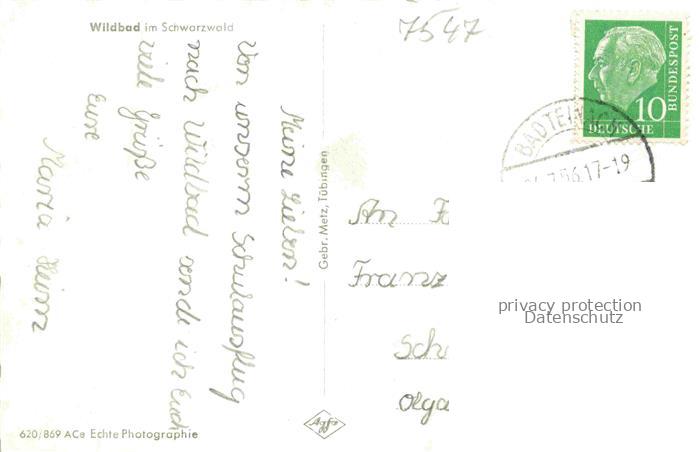 Wildbad im Schwarzwald
7547
Meine Lieben!
Von unserm Schulausflug
nach Wildbad sende ich Euch
viele Grüße
Eure
Maria
620/869 ACe Echte Photographie
Gebr. Metz, Tübingen
Agfa
10
DEUTSCHE
BUNDESPOST
BAD TEINACH
.7.56.17-19
An
Franz
Sch
Olga
privacy protection
Datenschutz